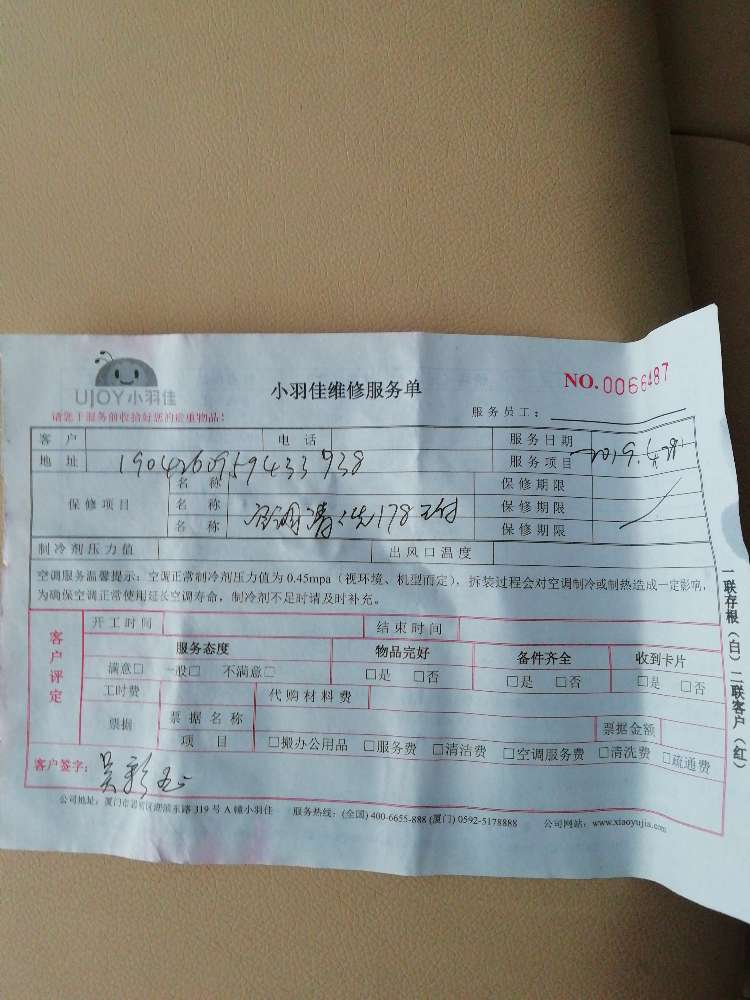 UJOY小羽佳
小羽佳维修服务单
NO.0066487
请您于服务前收拾好您的贵重物品!
服务员工:
客户 电话 服务日期 2019.4.28
地址 190426095943373​8 服务项目
保修项目
名称 保修期限
名称 空调清洗178已付 保修期限
名称 保修期限
制冷剂压力值 出风口温度
空调服务温馨提示:空调正常制冷剂压力值为 0.45mpa(视环境、机型而定),拆装过程会对空调制冷或制热造成一定影响,
为确保空调正常使用延长空调寿命,制冷剂不足时请及时补充。
客户评定
开工时间 结束时间
服务态度 物品完好 备件齐全 收到卡片
满意□ 一般□ 不满意□ □是 □否 □是 □否 □是 □否
工时费 代购材料费
票据 票据名称 票据金额
项目 □搬办公用品 □服务费 □清洁费 □空调服务费 □清洗费 □疏通费
客户签字:吴彩玉
公司地址:厦门市思明区湖滨东路 319 号 A 幢小羽佳 服务热线:(全国) 400-6655-888 (厦门) 0592-5178888 公司网站:www.xiaoyujia.com
一联存根(白)二联客户(红)